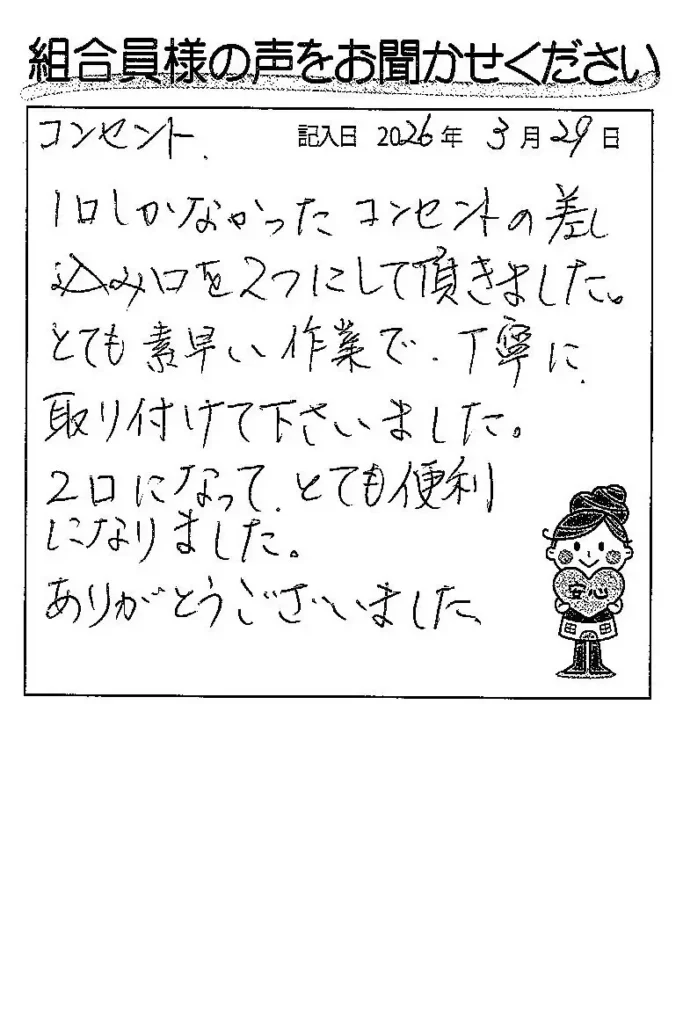 組合員様の声をお聞かせください
コンセント. 記入日 2026年 3月29日
1口しかなかった コンセントの差し
込み口を2つにして頂きました。
とても素早い作業で、丁寧に
取り付けて下さいました。
2口になって、とても便利
になりました。
ありがとうございました、
安心